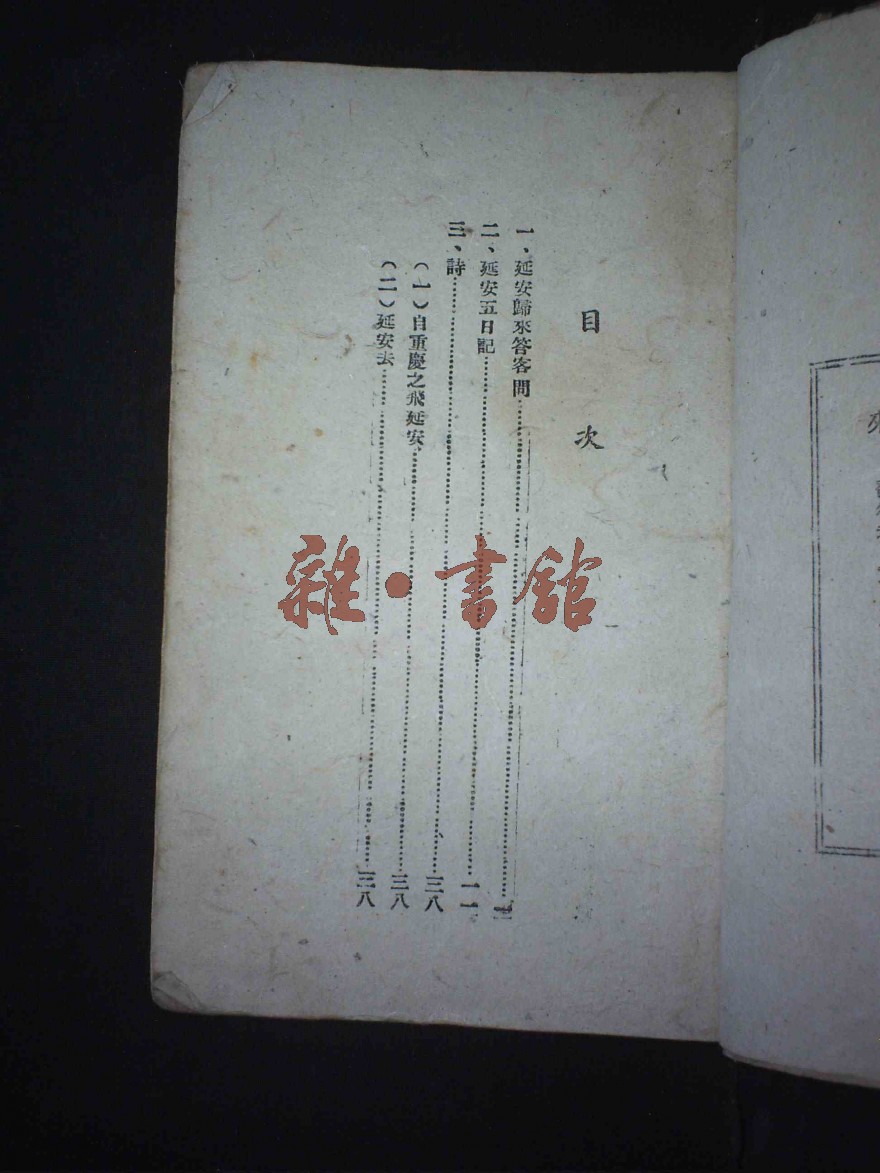 目次
一、延安歸來答客問
二、延安五日記……一一
三、詩……三八
（一）自重慶之飛延安……三八
（二）延安去……三八
雜·書館